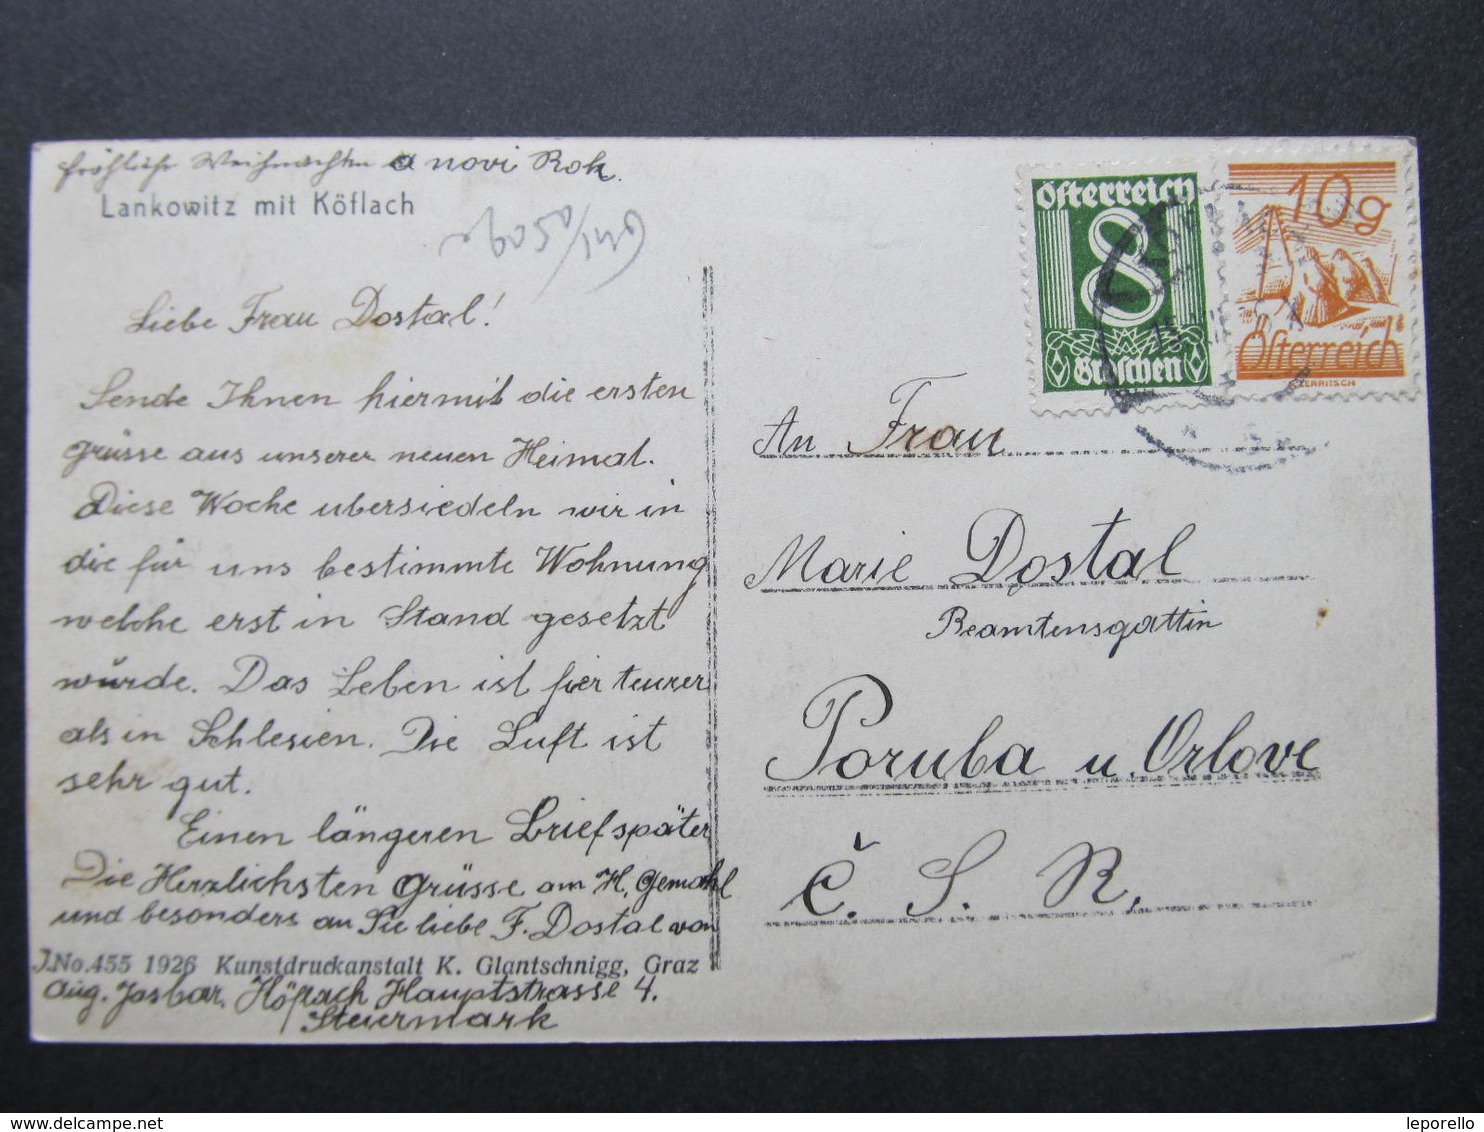 fröhliche Weihnachten a novi Rok.
Lankowitz mit Köflach
Liebe Frau Dostal!
Sende Ihnen hiermit die ersten
grüsse aus unserer neuen Heimat.
Diese Woche ubersiedeln wir in
die für uns bestimmte Wohnung
welche erst in Stand gesetzt
würde. Das Leben ist hier teurer
als in Schlesien. Die Luft ist
sehr gut.
Einen längeren Brief später
Die Herzlichsten Grüsse am H. Gemahl
und besonders an Sie liebe F. Dostal von
J.No.455 1926 Kunstdruckanstalt K. Glantschnigg, Graz
Aug. Köflach Hauptstrasse 4.
Steiermark
Österreich
8
Groschen
10g
Österreich
An Frau
Marie Dostal
Beamtensgattin
Poruba u. Orlove
Č. S. R.
www.delcampe.net
leporello